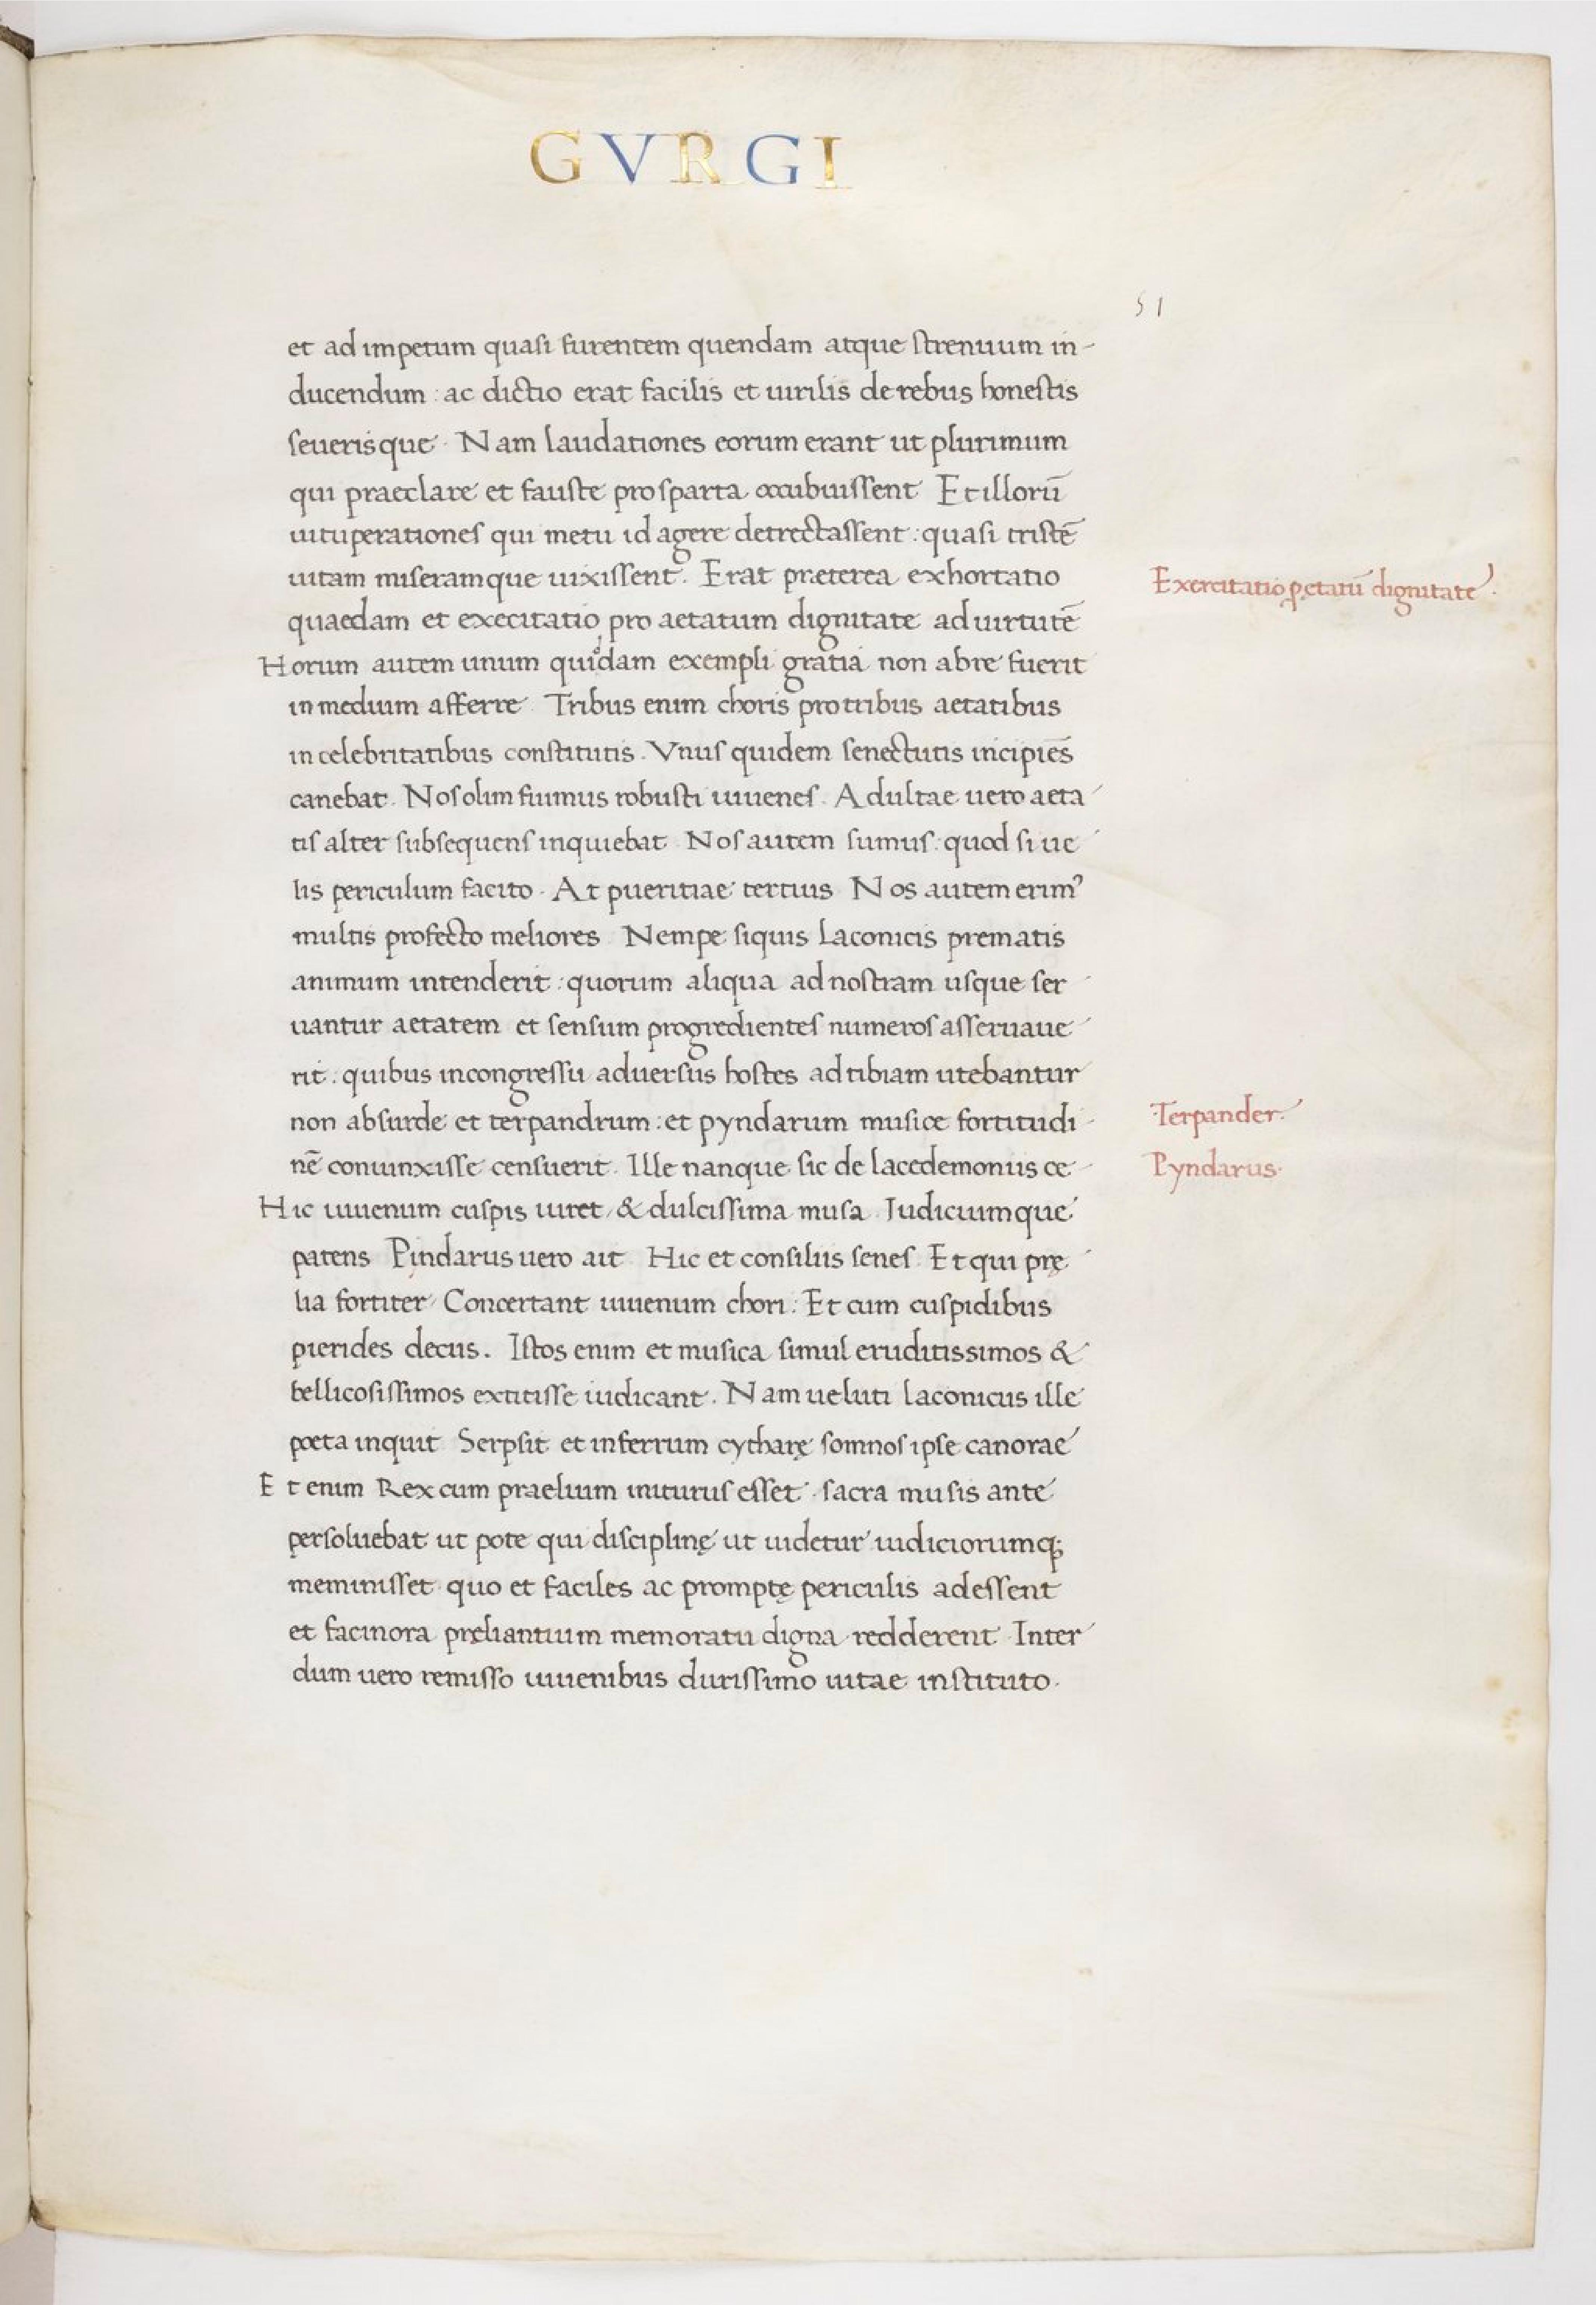 GVRGI
51
et ad impetum quasi furentem quendam atque strenuum in-
ducendum : ac dictio erat facilis et uirilis de rebus honestis
seuerisque · Nam laudationes eorum erant ut plurimum
qui praeclare et fauste pro sparta occubuissent Et illorū
uituperationes qui metu id agere detrectassent : quasi tristē
uitam miseramque uixissent . Erat præterea exhortatio
Exercitatio p etatū dignitate .
quaedam et execitatio pro aetatum dignitate ad uirtutē
Horum autem unum quidam exempli gratia non abre fuerit
in medium afferre Tribus enim choris pro tribus aetatibus
in celebritatibus constitutis . Vnus quidem senectutis incipiēs
canebat . Nos olim fuimus robusti iuuenes . Adultae uero aeta
tis alter subsequens inquiebat Nos autem sumus : quod si ue
lis periculum facito · At pueritiae tertius Nos autem erim⁹
multis profecto meliores Nempe siquis Laconicis prematis
animum intenderit : quorum aliqua ad nostram usque ser
uantur aetatem et sensum progredientes numeros asseruaue
rit : quibus in congressu aduersus hostes ad tibiam utebantur
non absurde et terpandrum : et pyndarum musice fortitudi
Terpander .
nē coniunxisse censuerit . Ille nanque sic de lacedemoniis ce
Pyndarus .
Hic iuuenum cuspis uiret / & dulcissima musa . Iudiciumque
patens Pindarus uero ait Hic et consiliis senes . Et qui prę
lia fortiter / Concertant iuuenum chori : Et cum cuspidibus
pierides decus . Istos enim et musica simul eruditissimos &
bellicosissimos extitisse iudicant . Nam ueluti laconicus ille
poeta inquit Serpsit et in ferrum cytharę somnos ipse canorae
Et enim Rex cum praelium initurus esset · sacra musis ante
persoluebat ut pote qui disciplinę ut uidetur iudiciorumq;
meminisset quo et faciles ac promptę periculis adessent
et facinora pręliantium memoratu digna redderent Inter
dum uero remisso iuuenibus durissimo uitae instituto .